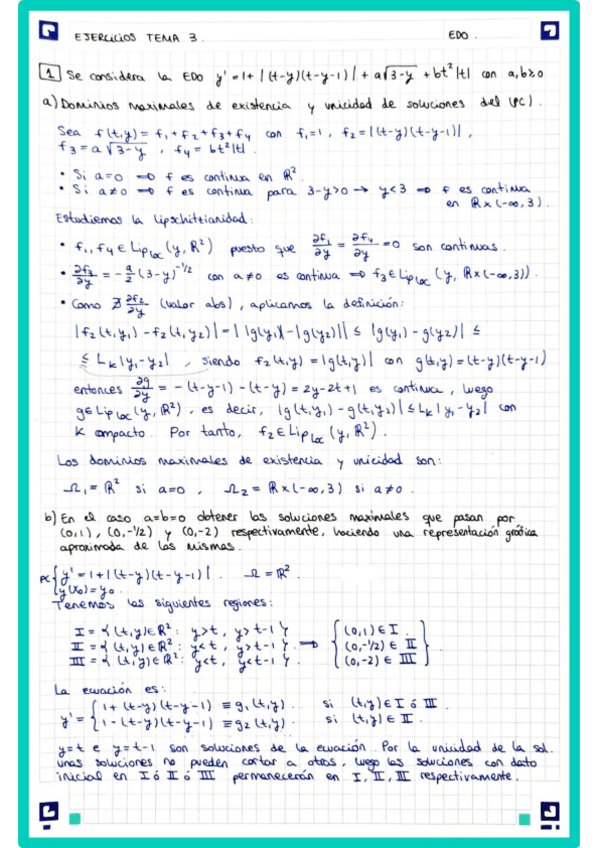 EJERCICIOS TEMA 3. EDO.
1 Se considera la EDO y' = 1 + |(t-y)(t-y-1)| + a√(3-y) + bt²|t| con a,b≥0
a) Dominios maximales de existencia y unicidad de soluciones del (PC).
Sea f(t,y) = f₁+f₂+f₃+f₄ con f₁=1, f₂=|(t-y)(t-y-1)|,
f₃ = a√(3-y), f₄ = bt²|t|.
• Si a=0 ⟹ f es continua en ℝ².
• Si a≠0 ⟹ f es continua para 3-y>0 → y<3 ⟹ f es continua
en ℝ×(-∞,3).
Estudiemos la Lipschitzianidad:
• f₁, f₄ ∈ Lip_loc(y,ℝ²) puesto que ∂f₁/∂y = ∂f₄/∂y = 0 son continuas.
• ∂f₃/∂y = -a/2 (3-y)^(-1/2) con a≠0 es continua ⟹ f₃ ∈ Lip_loc(y, ℝ×(-∞,3)).
• Como ∄ ∂f₂/∂y (valor abs), aplicamos la definición:
|f₂(t,y₁) - f₂(t,y₂)| = | |g(y₁)| - |g(y₂)| | ≤ |g(y₁) - g(y₂)| ≤
≤ L_K |y₁-y₂|, siendo f₂(t,y) = |g(t,y)| con g(t,y) = (t-y)(t-y-1)
entonces ∂g/∂y = -(t-y-1) - (t-y) = 2y-2t+1 es continua, luego
g∈Lip_loc(y,ℝ²), es decir, |g(t,y₁) - g(t,y₂)| ≤ L_K |y₁-y₂| con
K compacto. Por tanto, f₂ ∈ Lip_loc(y,ℝ²).
Los dominios maximales de existencia y unicidad son:
Ω₁ = ℝ² si a=0, Ω₂ = ℝ×(-∞,3) si a≠0.
b) En el caso a=b=0 obtener las soluciones maximales que pasan por
(0,1), (0,-1/2) y (0,-2) respectivamente, haciendo una representación gráfica
aproximada de las mismas.
PC { y' = 1 + |(t-y)(t-y-1)|. Ω = ℝ².
y(x₀) = y₀.
Tenemos las siguientes regiones:
I = {(t,y)∈ℝ² : y>t, y>t-1} (0,1) ∈ I
II = {(t,y)∈ℝ² : y<t, y>t-1} ⟹ (0,-1/2) ∈ II
III = {(t,y)∈ℝ² : y<t, y<t-1} (0,-2) ∈ III
La ecuación es:
y' = { 1 + (t-y)(t-y-1) ≡ g₁(t,y). si (t,y)∈ I ó III.
1 - (t-y)(t-y-1) ≡ g₂(t,y). si (t,y)∈ II.
y=t e y=t-1 son soluciones de la ecuación. Por la unicidad de la sol.
unas soluciones no pueden cortar a otras, luego las soluciones con dato
inicial en I ó II ó III permanecerán en I, II, III respectivamente.